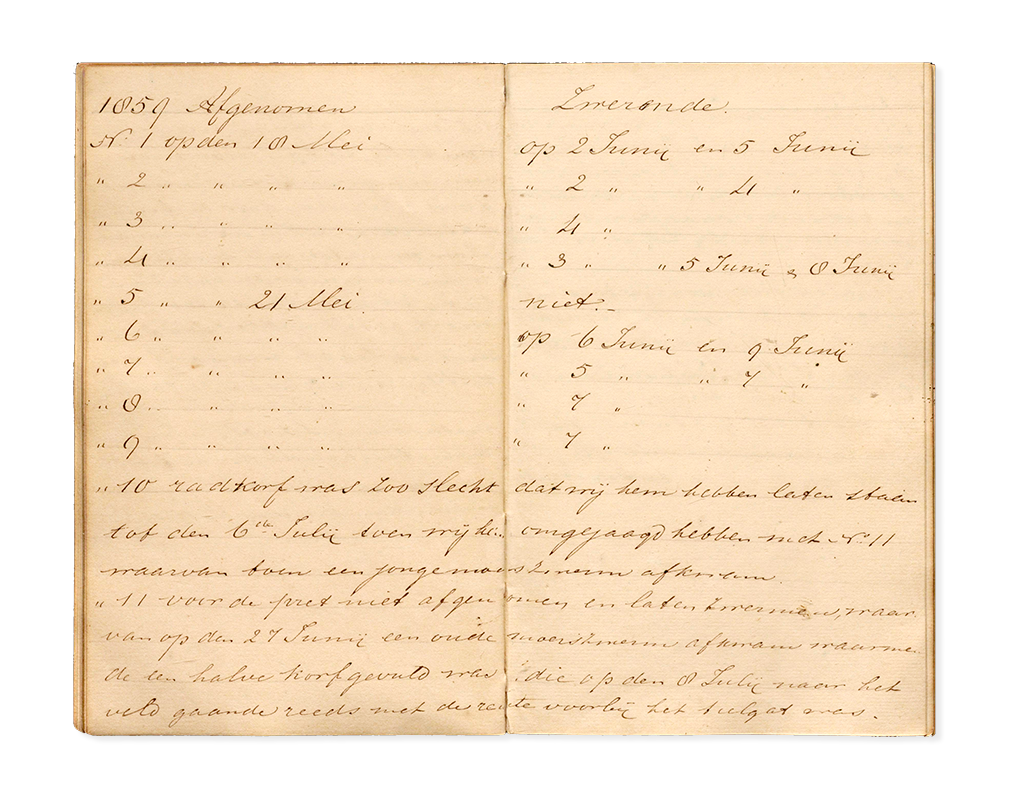 1859 Afgenomen Zwermde.
No. 1 op den 18 Mei op 2 Junij en 5 Junij
" 2 " " " " " 2 " " 4 "
" 3 " " " " " 4 "
" 4 " " " " " 3 " " 5 Junij & 8 Junij
" 5 " " 21 Mei niet.-
" 6 " " " " op 6 Junij en 9 Junij
" 7 " " " " " 5 " " 7 "
" 8 " " " " " 7 "
" 9 " " " " " 7 "
" 10 radkorf was zoo slecht dat wij hem hebben laten staan
tot den 6de Julij toen wij hem omgejaagd hebben met No. 11
waarvan toen een jonge moerszwerm afkwam.
" 11 voor de pret niet afgenomen en laten zwermen, waar
van op den 27 Junij een oude moerszwerm afkwam waarme
de een halve korf gevuld was die op den 8 Julij naar het
veld gaande reeds met de reate voorbij het tulgat was.